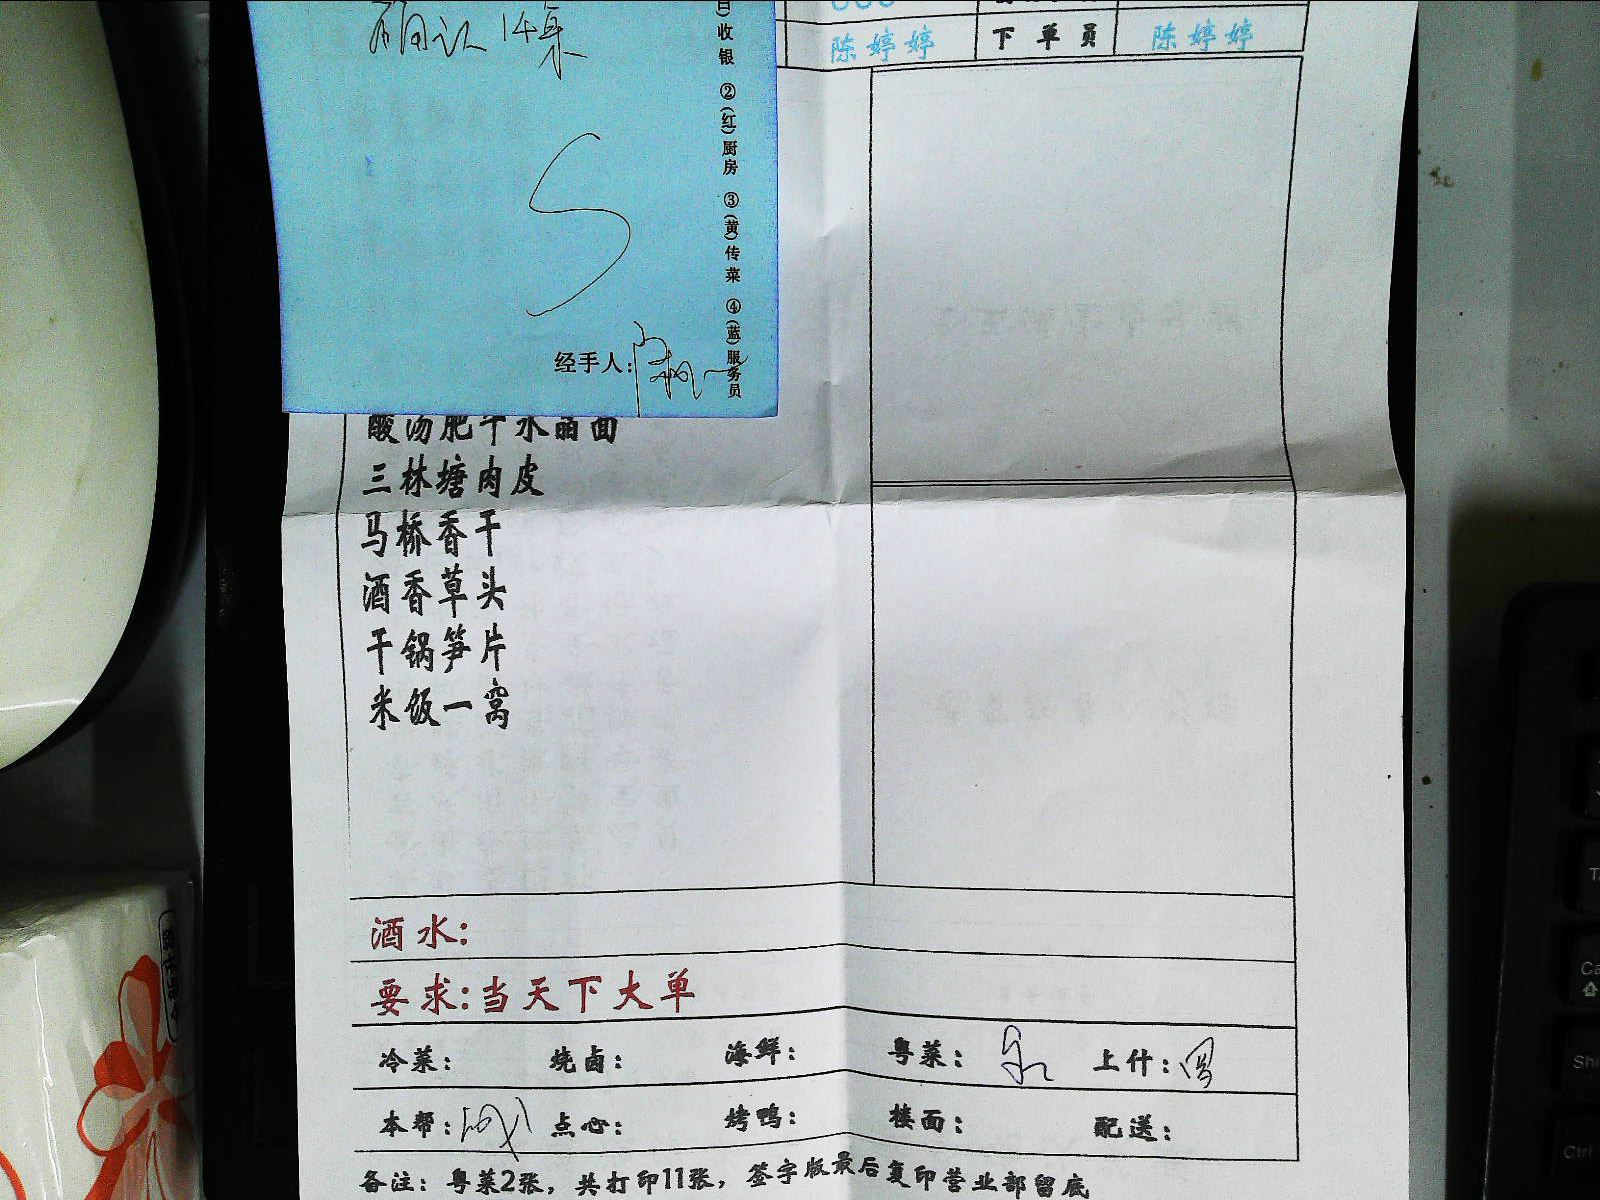 确认14桌
收银 ②(红)厨房 ③(黄)传菜 ④(蓝)服务员
陈婷婷 下单员 陈婷婷
经手人:
酸汤肥牛水晶面
三林塘肉皮
马桥香干
酒香草头
干锅笋片
米饭一窝
酒水:
要求:当天下大单
冷菜: 烧卤: 海鲜: 粤菜: 上什:
本帮: 点心: 烤鸭: 楼面: 配送:
备注: 粤菜2张, 共打印11张, 签字版最后复印营业部留底